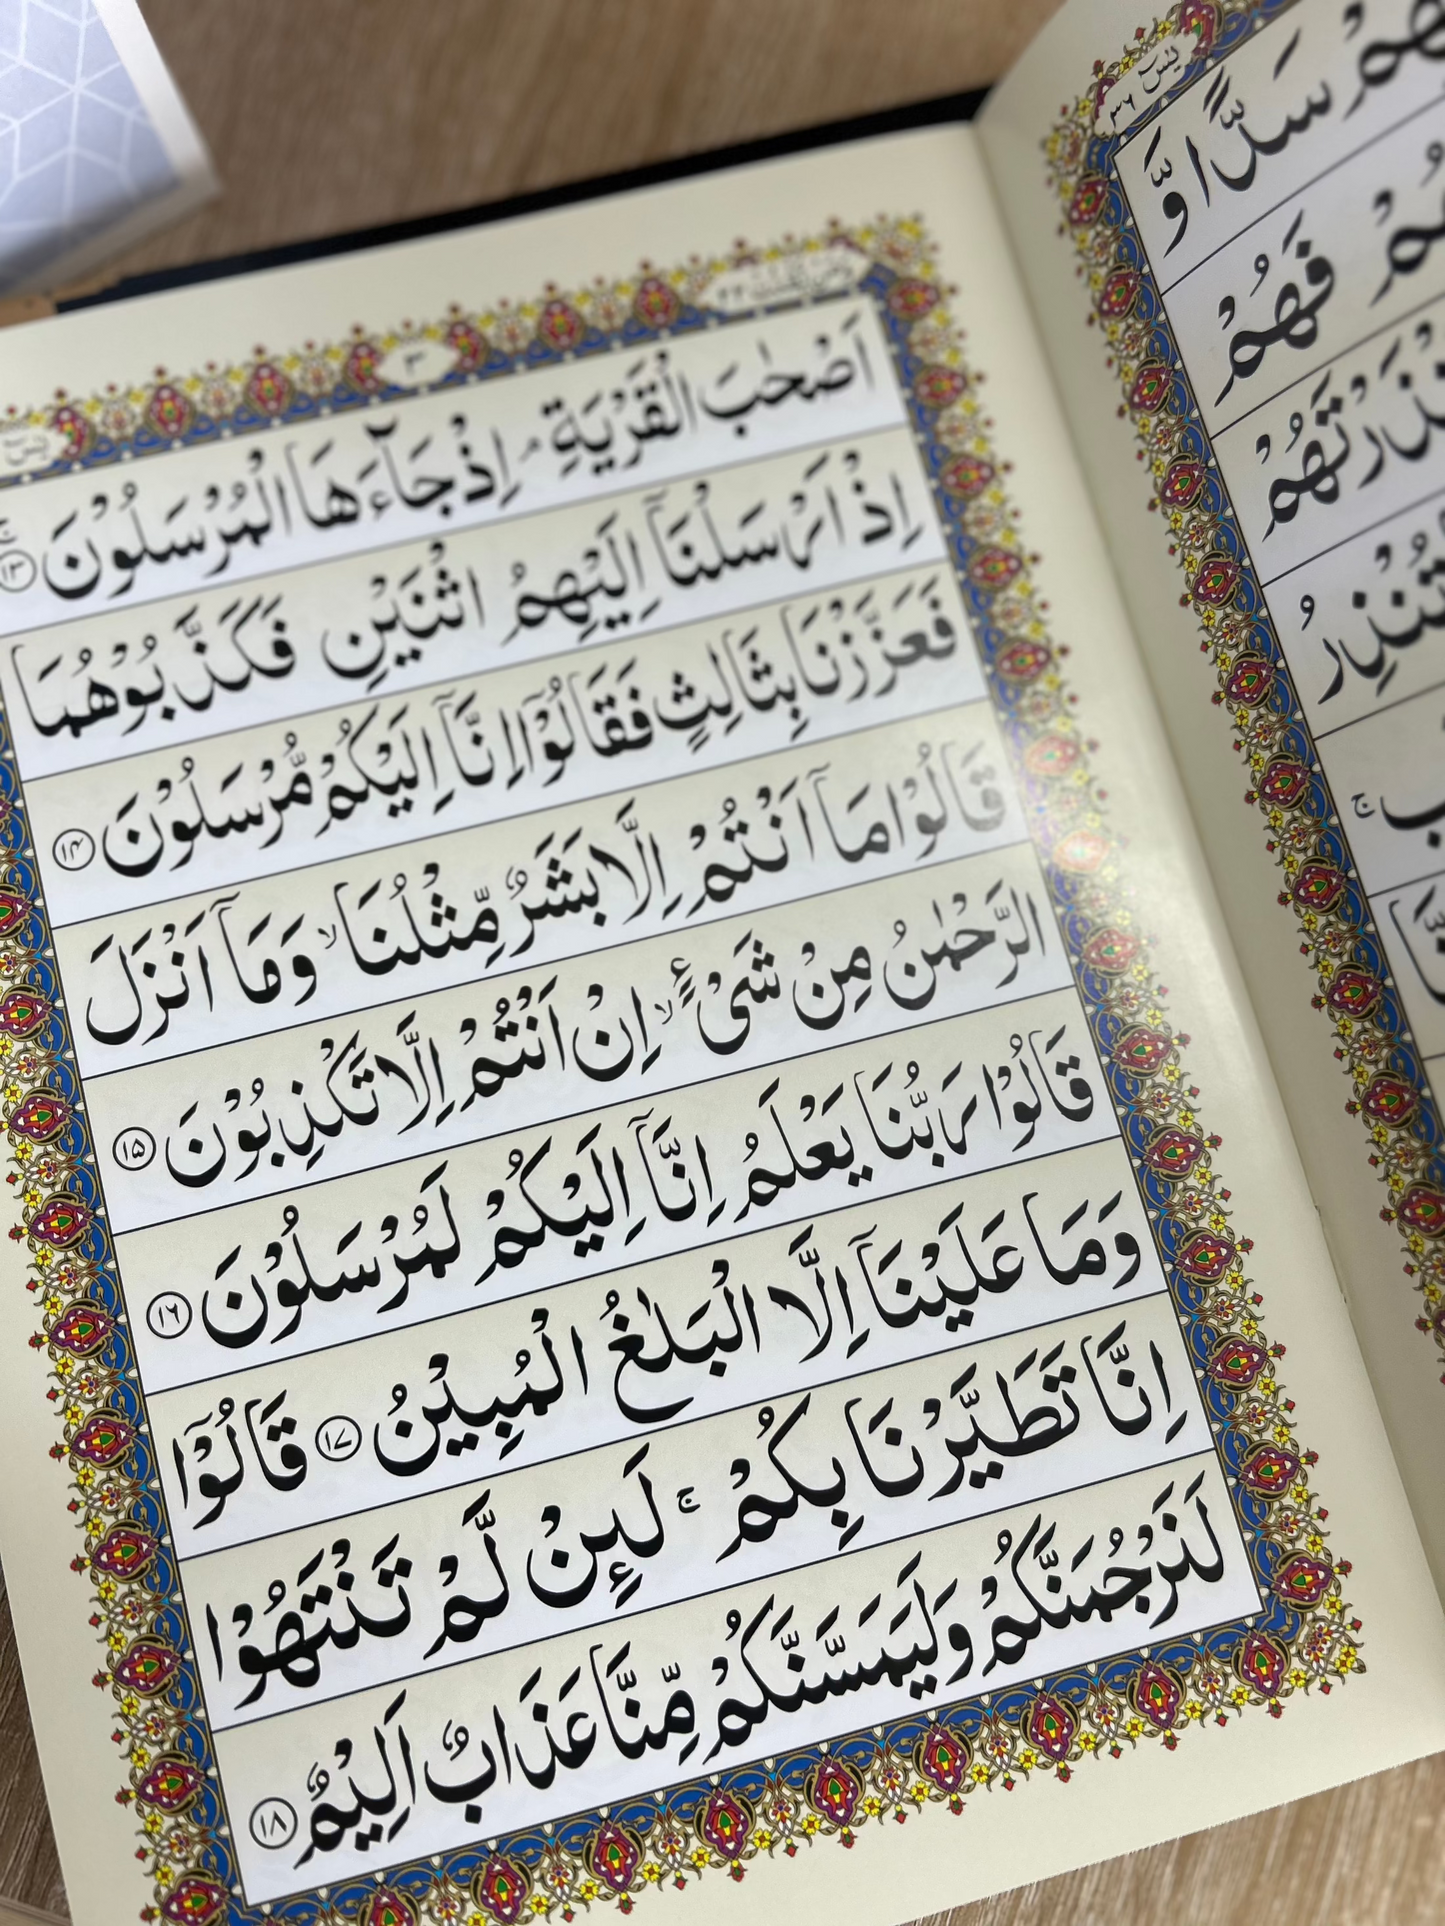 یٰسٓ ٣٦
سَدًّا وَّ
فَهُمْ
تُنْذِرُ
ومن يقنت ٢٢
٣
یٰسٓ
اَصْحٰبَ الْقَرْیَةِ ۘ اِذْ جَآءَهَا الْمُرْسَلُوْنَ ۝۱۳
اِذْ اَرْسَلْنَاۤ اِلَیْهِمُ اثْنَیْنِ فَكَذَّبُوْهُمَا
فَعَزَّزْنَا بِثَالِثٍ فَقَالُوْۤا اِنَّاۤ اِلَیْكُمْ مُّرْسَلُوْنَ ۝۱۴
قَالُوْا مَاۤ اَنْتُمْ اِلَّا بَشَرٌ مِّثْلُنَا ۙ وَمَاۤ اَنْزَلَ
الرَّحْمٰنُ مِنْ شَیْءٍ ۙ اِنْ اَنْتُمْ اِلَّا تَكْذِبُوْنَ ۝۱۵
قَالُوْا رَبُّنَا یَعْلَمُ اِنَّاۤ اِلَیْكُمْ لَمُرْسَلُوْنَ ۝۱۶
وَمَا عَلَیْنَاۤ اِلَّا الْبَلٰغُ الْمُبِیْنُ ۝۱۷ قَالُوْۤا
اِنَّا تَطَیَّرْنَا بِكُمْ ۚ لَىِٕنْ لَّمْ تَنْتَهُوْا
لَنَرْجُمَنَّكُمْ وَلَیَمَسَّنَّكُمْ مِّنَّا عَذَابٌ اَلِیْمٌ ۝۱۸